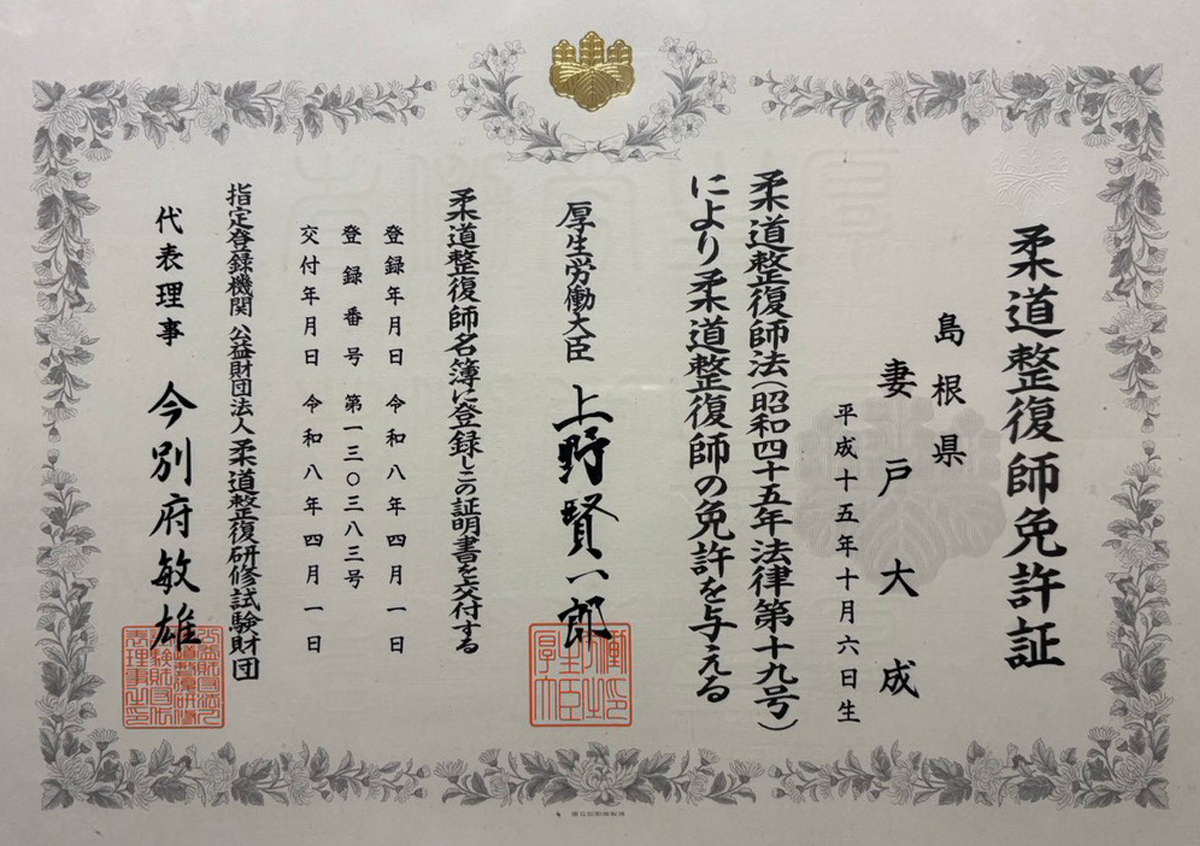 柔道整復師免許証
島根県
妻戸大成
平成十五年十月六日生
柔道整復師法(昭和四十五年法律第十九号)
により柔道整復師の免許を与える
厚生労働大臣 上野賢一郎
柔道整復師名簿に登録しこの証明書を交付する
登録年月日 令和八年四月一日
登録番号 第一三〇三八三号
交付年月日 令和八年四月一日
指定登録機関 公益財団法人 柔道整復研修試験財団
代表理事 今別府敏雄